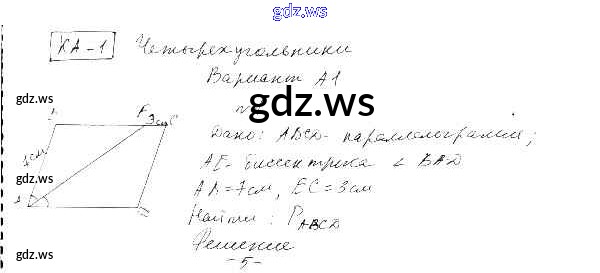 gdz.ws
КА-1 Четырехугольники
Вариант А1
gdz.ws
gdz.ws
E 3см C
Дано: ABCD - параллелограмм;
7см
gdz.ws
AE - биссектриса ∠ BAD
AB = 7см, EC = 3см
A
Найти: P ABCD
D
Решение
gdz.ws
-5-